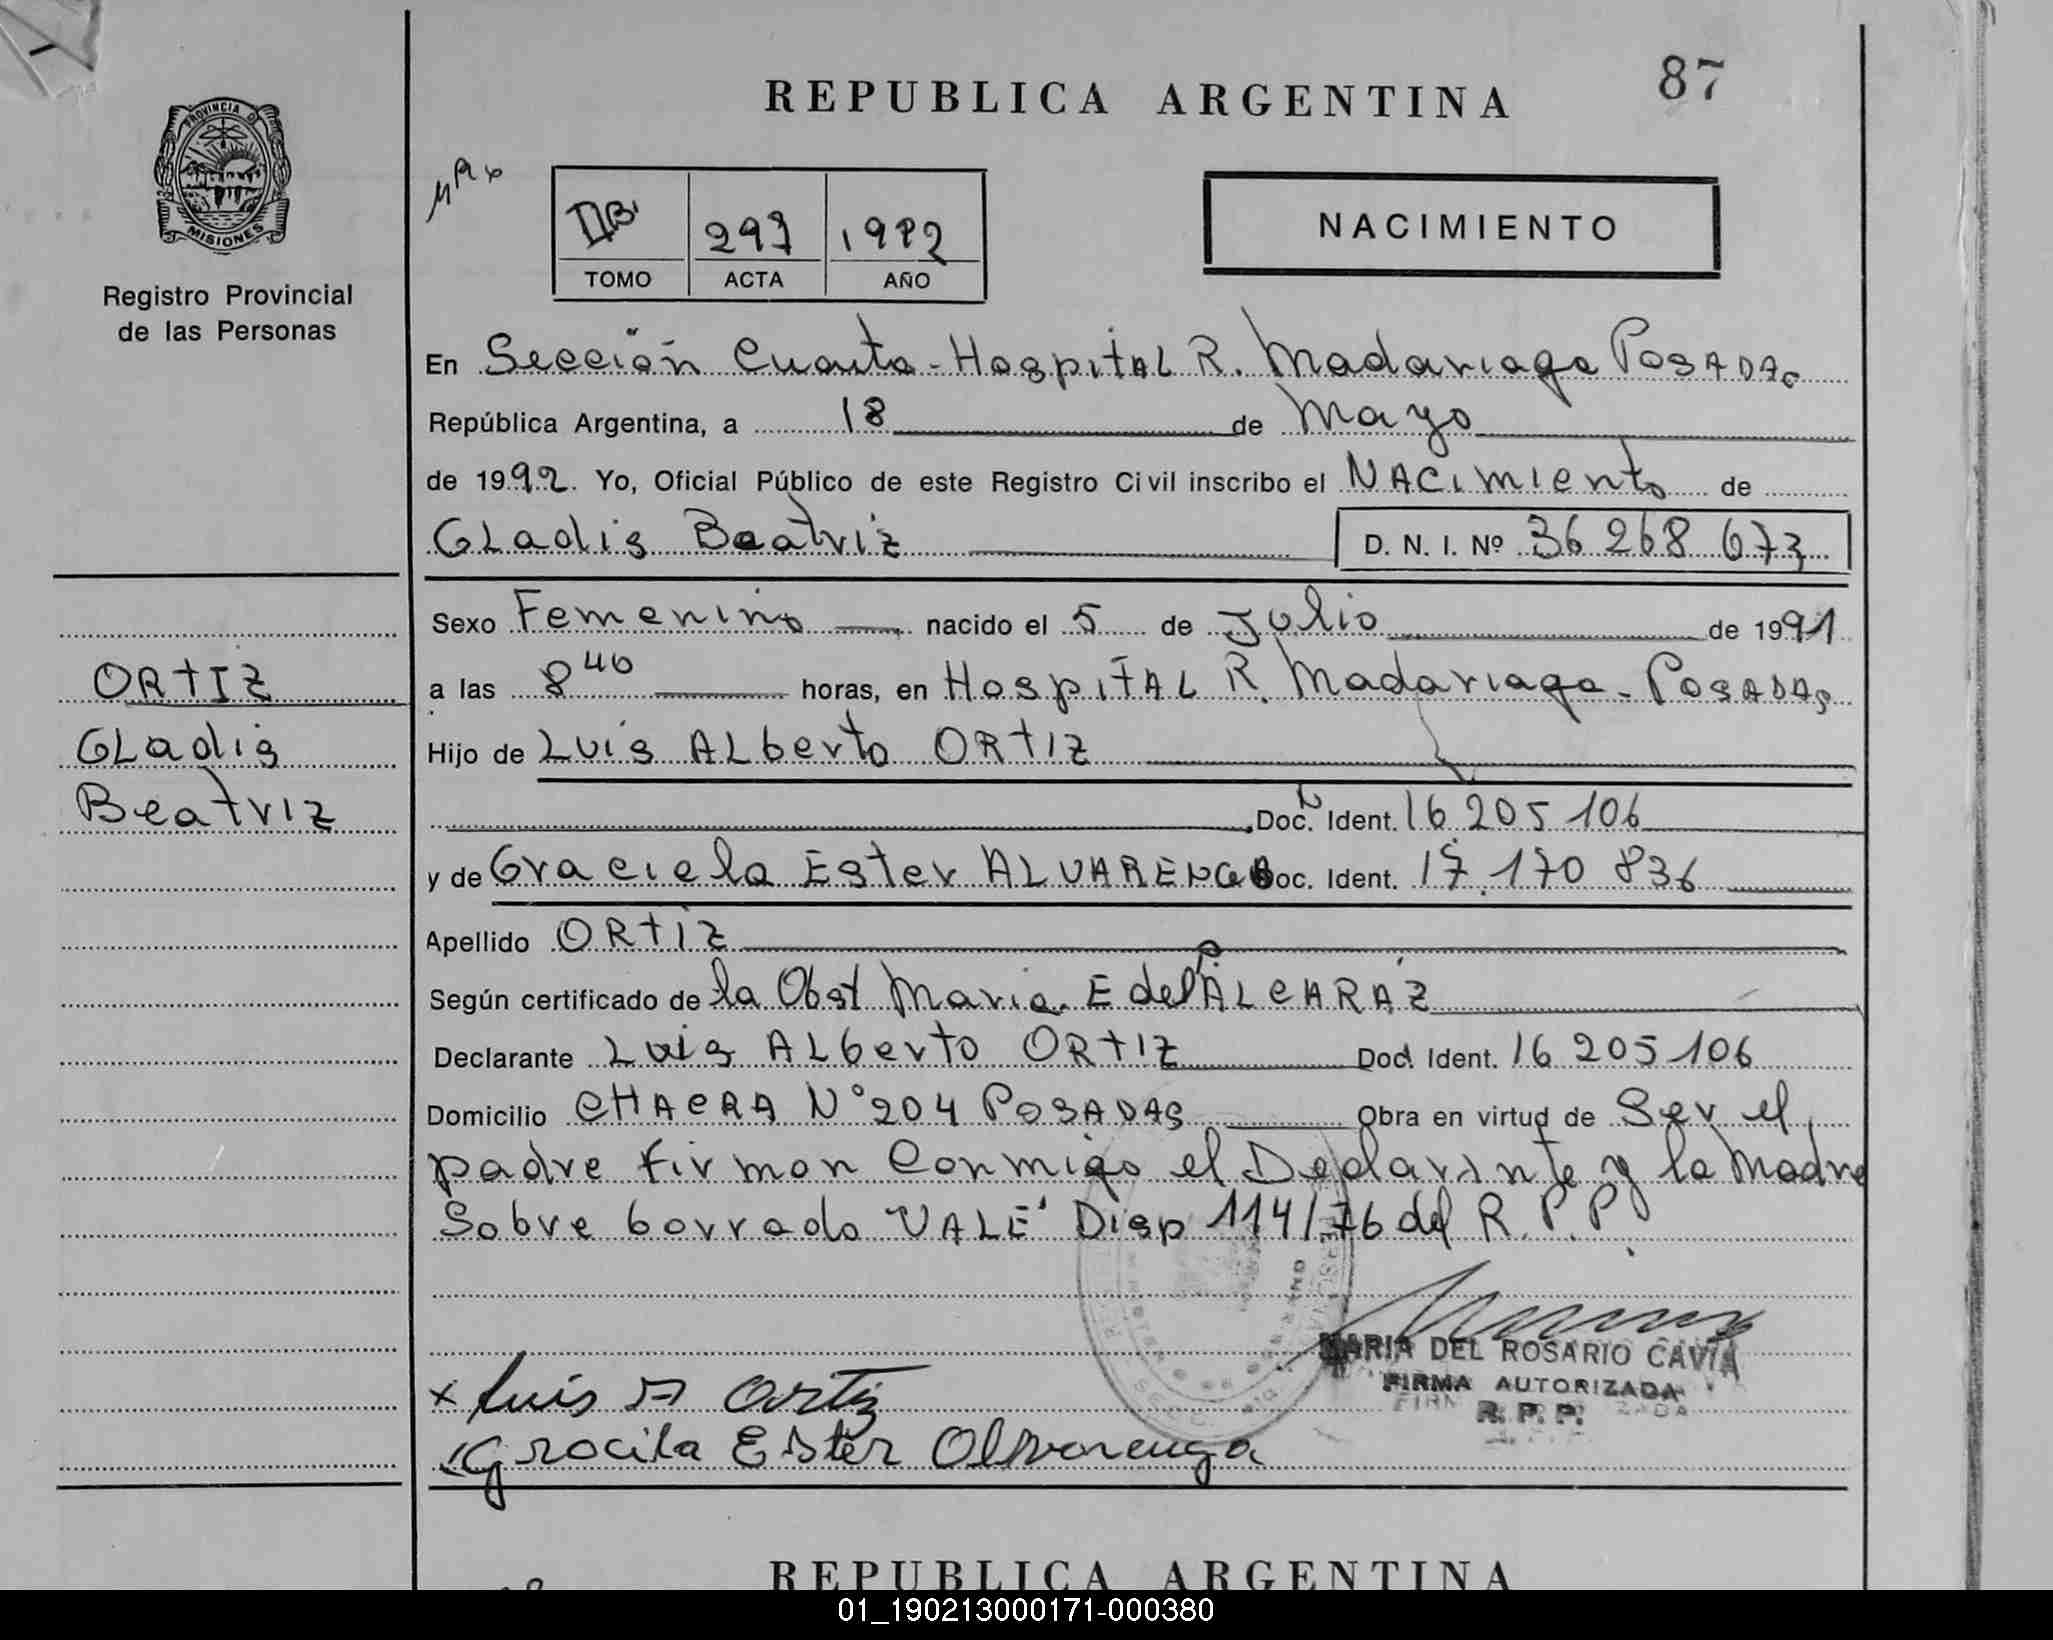 87
REPUBLICA ARGENTINA
PROVINCIA D
MISIONES
Registro Provincial
de las Personas
NACIMIENTO
IIB 297 1992
TOMO ACTA AÑO
En Sección Cuarta - Hospital R. Madariaga Posadas
República Argentina, a 18 de Mayo
de 1992. Yo, Oficial Público de este Registro Civil inscribo el NACimiento de
GLadis Beatriz D. N. I. Nº 36 268 673
Sexo Femenino nacido el 5 de Julio de 1991
a las 8 40 horas, en Hospital R. Madariaga - Posadas
Hijo de Luis ALberto ORtiz
Doc. Ident. 16 205 106
y de Graciela Ester ALVARENGA Doc. Ident. 17.170 836
Apellido ORtiz
Según certificado de la Obst Maria E del P ALCARAZ
Declarante Luis ALberto ORtiz Doc. Ident. 16 205 106
Domicilio CHACRA N° 204 Posadas Obra en virtud de Ser el
padre firman Conmigo el Declarante y la Madre
Sobre borrado "VALE" Disp 114/76 del R. P. P.
ORTIZ
GLadis
Beatriz
MARIA DEL ROSARIO CAVIA
FIRMA AUTORIZADA
R. P. P.
x Luis A Ortiz
x Gracila Ester Alvarenga
REPUBLICA ARGENTINA
01_190213000171-000380